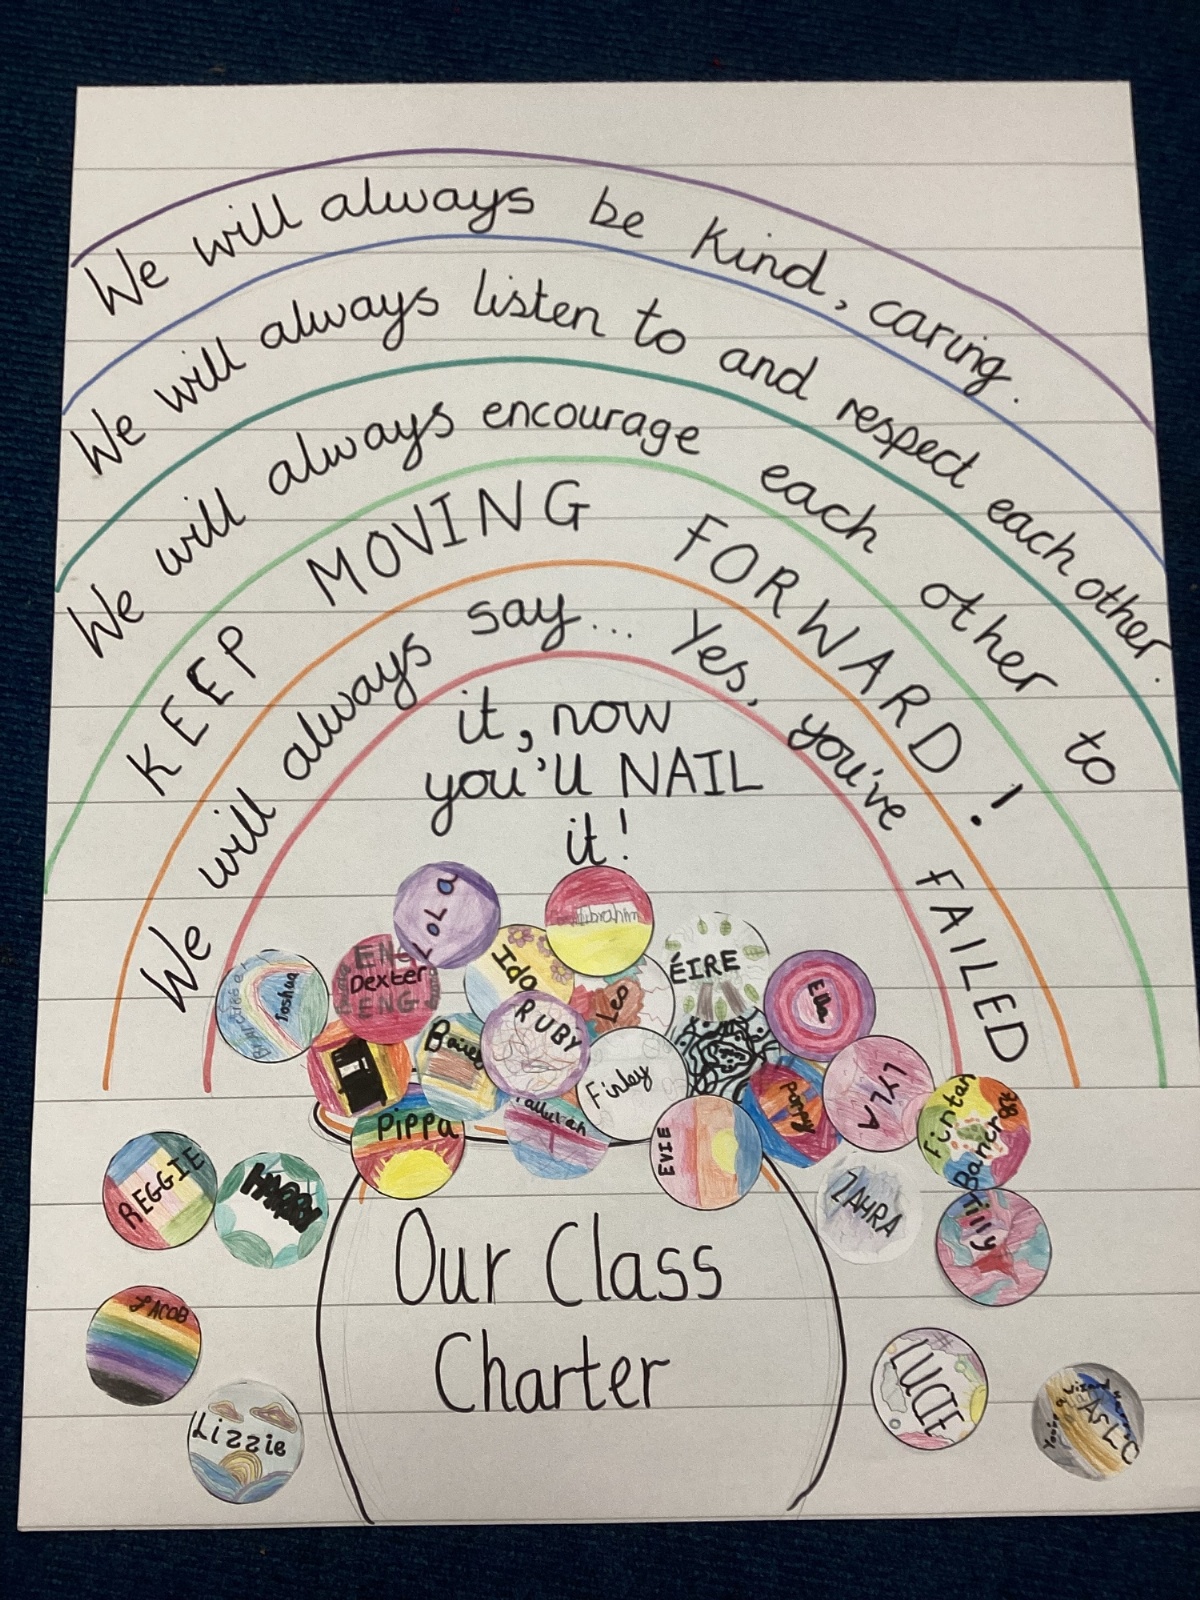 We will always be kind, caring.
We will always listen to and respect each other.
We will always encourage each other to
KEEP MOVING FORWARD!
We will always say... Yes, you've FAILED
it, now
you'll NAIL
it!
LOLA
Ibrahim
Joshua
ENG
Dexter
ENG
Ido
Leo
ÉIRE
Ella
RUBY
Finley
Poppy
LYLA
Fintan
Bancroft
Pippa
Tallulah
EVIE
REGGIE
ZAHRA
Tilly
JACOB
Lizzie
LUCIE
You're a wizard
Our Class
Charter